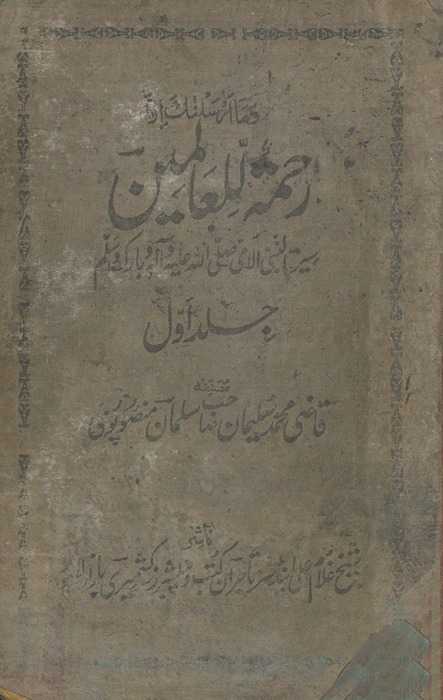 وما ارسلنك الا
رحمة للعالمين
سیرۃ النبی الامی صلی اللہ علیہ وآلہ وبارک وسلم
جلد اوّل
مصنفہ
قاضی محمد سلیمان صاحب سلمان منصورپوری
ناشر
شیخ غلام علی اینڈ سنز تاجران کتب و پبلشرز کشمیری بازار